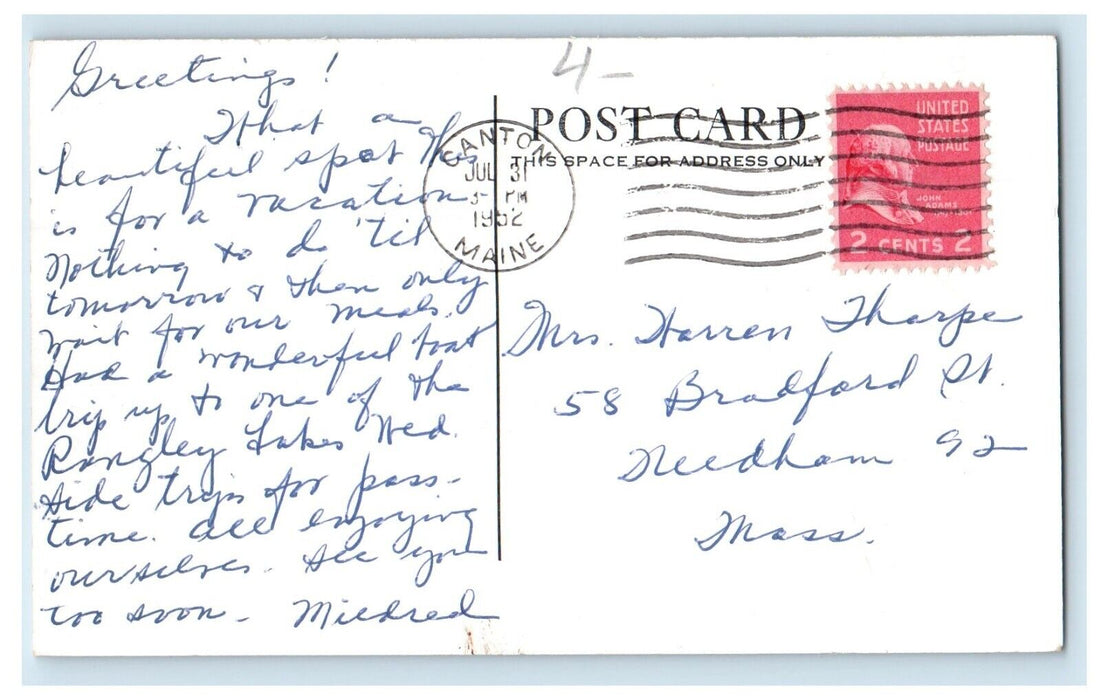 Greetings!
What a
beautiful spot this
is for a vacation
Nothing to do 'til
tomorrow & then only
wait for our meals.
Had a wonderful boat
trip up to one of the
Rangley Lakes Wed.
Side trips for pass-
time. All enjoying
ourselves. See you
too soon - Mildred
4-
POST CARD
THIS SPACE FOR ADDRESS ONLY
CANTON
JUL 31
3- PM
1952
MAINE
UNITED
STATES
POSTAGE
JOHN
ADAMS
2 CENTS 2
Mrs. Warren Tharpe
58 Bradford St.
Needham 92
Mass.